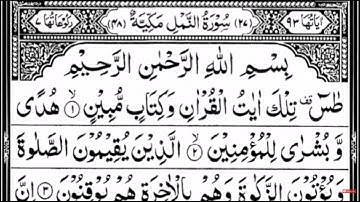 اٰیَاتُهَا ٩٣ (٢٧) سُوْرَةُ النَّمْلِ مَكِّيَّةٌ (٤٨) رُكُوْعَاتُهَا ٧
بِسْمِ اللّٰهِ الرَّحْمٰنِ الرَّحِيْمِ
طٰسٓ قف تِلْكَ اٰيٰتُ الْقُرْاٰنِ وَكِتَابٍ مُّبِيْنٍ ۙ﴿١﴾ هُدًى
وَّ بُشْرٰى لِلْمُؤْمِنِيْنَ ۙ﴿٢﴾ الَّذِيْنَ يُقِيْمُوْنَ الصَّلٰوةَ
وَ يُؤْتُوْنَ الزَّكٰوةَ وَهُمْ بِالْاٰخِرَةِ هُمْ يُوْقِنُوْنَ ﴿٣﴾ اِنَّ